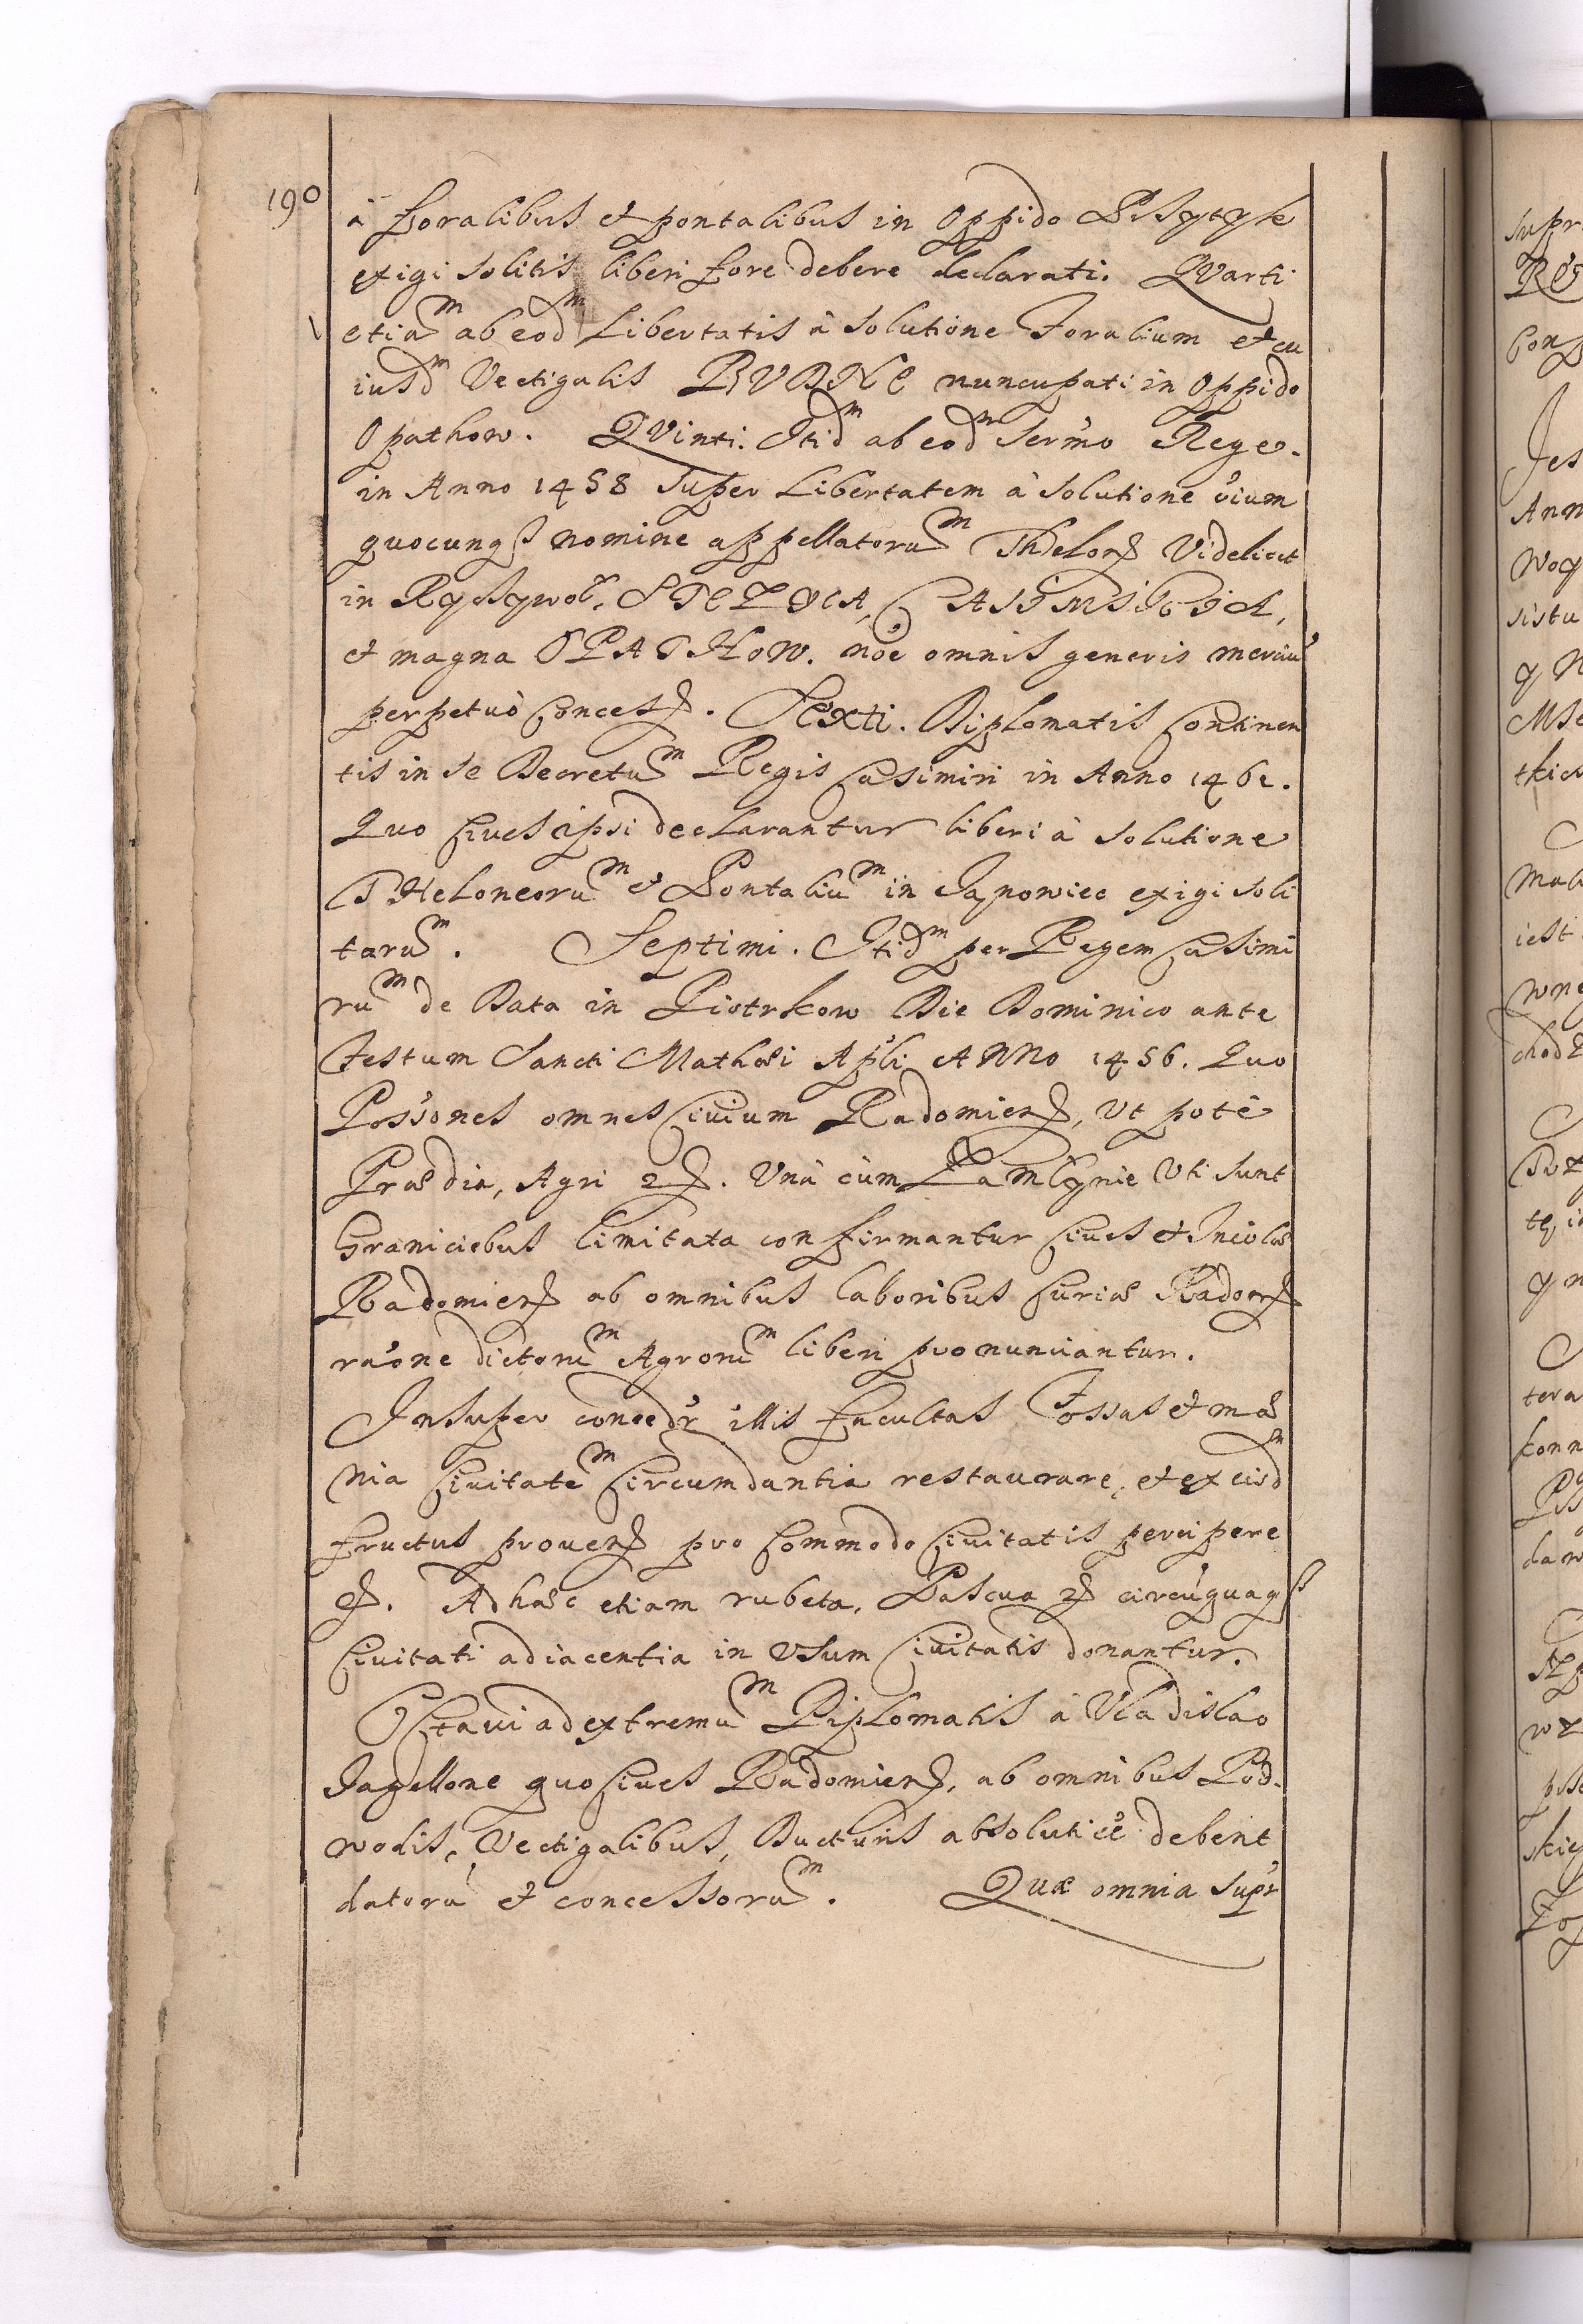 190
à foralibus et pontalibus in Oppido Pszytyk
exigi solitis liberi fore debere declarati. QVarti
etiam ab eodm Libertatis à solutione Foralium et eu
iusdm Vectigalis BVDNE nuncupati in Oppido
Opathow. QVinti. Itidm ab eodm Sermo Rege.
in Anno 1458 super Libertatem à solutione oium
quocunq nomine appellatorum Thelon Videlicet
in Ryczywol,
et magna OPATHOW. noe omnis generis merciu
perpetuò conces. Sexti. Diplomatis continen
tis in se Decretum Regis Casimiri in Anno 1461.
Quo Ciues ipsi declarantur liberi à solutione
THeloneorum et Pontalium in Janowiec exigi soli
tarum. Septimi. Itidm per Regem Casimi
rum de Data in Piotrkow Die Dominico ante
Festum Sancti Mathæi Apli ANNo 1456. Quo
Possones omnes Ciuium Radomien, Vt pote
Prædia, Agri 2. Vnà cùm Lamlynie Vti sunt
Graniciebus limitata confirmantur Ciues et Incolæ
Radomien ab omnibus laboribus Curiæ Radom
raone dictorum Agrorum liberi pronunciantur.
Insuper concedr illis facultas Fossas et mæ
nia Ciuitatem Circumdantia restaurare, et ex eisdm
fructus prouen pro Commodo Ciuitatis percipere
et. Ad hæc etiam rubeta, Pascua 2 circuquaq
Ciuitati adiacentia in Vsum Ciuitatis donantur.
Octaui ad extremum Diplomatis à Vladislao
Jagellone quo Ciues Radomien, ab omnibus Pod.
wodis, Vectigalibus, Ducturis absoluti eë debent
datoru et concessorum. Quæ omnia supr